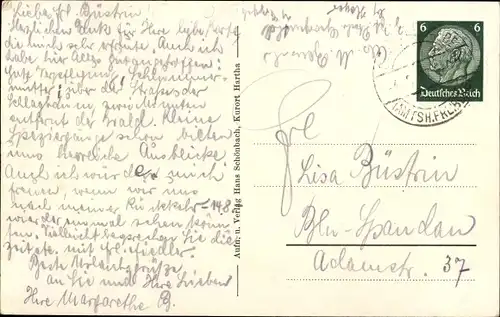 Liebe Frl. Büstrin!
Herzlichen Dank für Ihre liebe Karte
die mich sehr erfreute. Auch ich
habe hier Alles gut angetroffen:
Gute Verpflegung,
mutter, über die Strasse der
zwei Minuten
entfernt der Wald. Kleine
Spaziergänge schon bieten
uns herrliche Ausblicke.
Auch ich würde mich
freuen, wenn wir uns
nach meiner Rückkehr
wieder einmal sehen könn
ten. Vielleicht besprechen Sie die
mit Frl. Fiedler.
Beste Urlaubsgrüße
an Sie und Ihre Lieben
Ihre Margarethe B.
Aufn. u. Verlag Hans Schönbach, Kurort Hartha
6 6
Deutsches Reich
Frl.
Lisa Büstrin
Bln-Spandau
Adamstr. 37